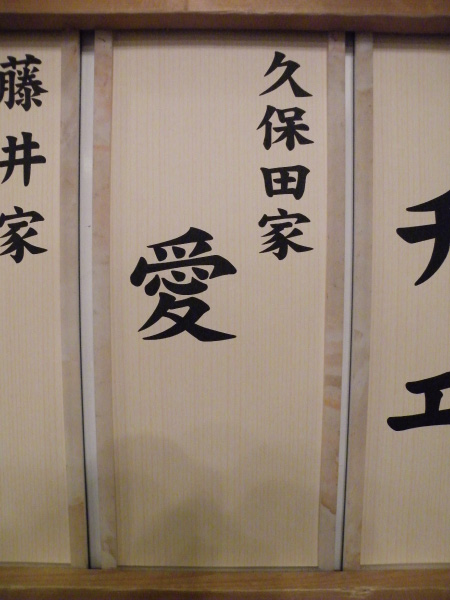 チエ
久保田家
愛
藤井家